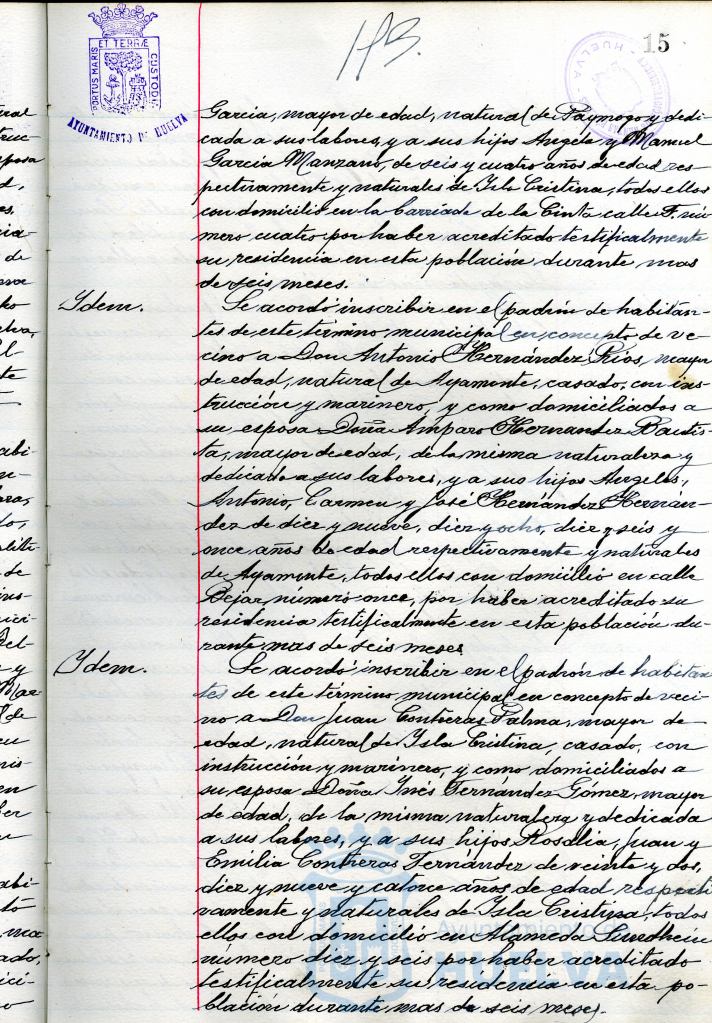 PORTUS MARIS ET TERRÆ CUSTODIA
AYUNTAMIENTO DE HUELVA
15
HUELVA
Garcia, mayor de edad, natural de Paymogo y dedi-
cada a sus labores, y a sus hijos Angela y Manuel
Garcia Manzano, de seis y cuatro años de edad res-
pectivamente y naturales de Isla Cristina, todos ellos
con domicilio en la barriada de la Cinta calle F. nú-
mero cuatro por haber acreditado testificalmente
su residencia en esta población durante mas
de seis meses.
Ydem.
Se acordó inscribir en el padrón de habitan-
tes de este término municipal en concepto de ve-
cino a Don Antonio Hernández Rios, mayor
de edad, natural de Ayamonte, casado, con ins-
trucción y marinero, y como domiciliados a
su esposa Doña Amparo Hernandez Bautis-
ta, mayor de edad, de la misma naturaleza y
dedicada a sus labores, y a sus hijos Angeles,
Antonio, Carmen y José Hernández Hernán-
dez de diez y nueve, diez y ocho, diez y seis y
once años de edad respectivamente y naturales
de Ayamonte, todos ellos con domicilio en calle
Bejar número once, por haber acreditado su
residencia testificalmente en esta población du-
rante mas de seis meses
Ydem.
Se acordó inscribir en el padrón de habitan
tes de este término municipal en concepto de veci-
no a Don Juan Contreras Palma, mayor de
edad, natural de Isla Cristina, casado, con
instrucción y marinero, y como domiciliados a
su esposa Doña Inés Fernandez Gómez, mayor
de edad, de la misma naturaleza y dedicada
a sus labores, y a sus hijos Rosalia, Juan y
Emilia Contreras Fernández de veinte y dos,
diez y nueve y catorce años de edad respecti
vamente y naturales de Isla Cristina, todos
ellos con domicilio en Alameda Sundheim
número diez y seis por haber acreditado
testificalmente su residencia en esta po-
blación durante mas de seis meses.
Ayuntamiento de
HUELVA